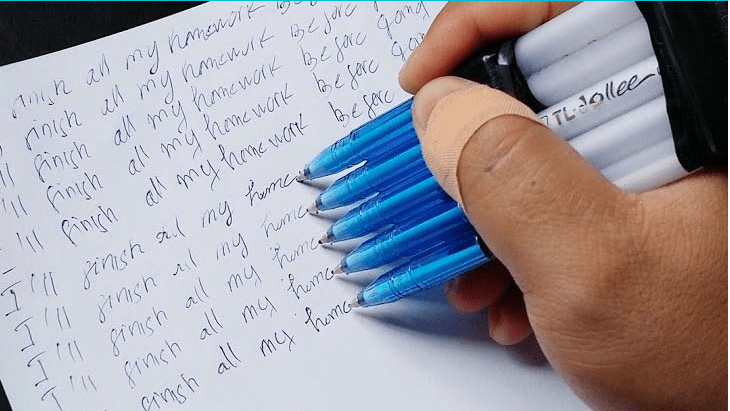 finish all my homework Before
finish all my homework Before going
I'll finish all my homework Before going
I'll finish all my homework Before
I'll finish all my homework Before
I'll finish all my home
I'll finish all my home
I'll finish all my home
I'll finish all my home
finish all my home
TL-dollee